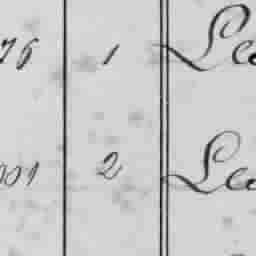 76 1 Lea
001 2 Lea